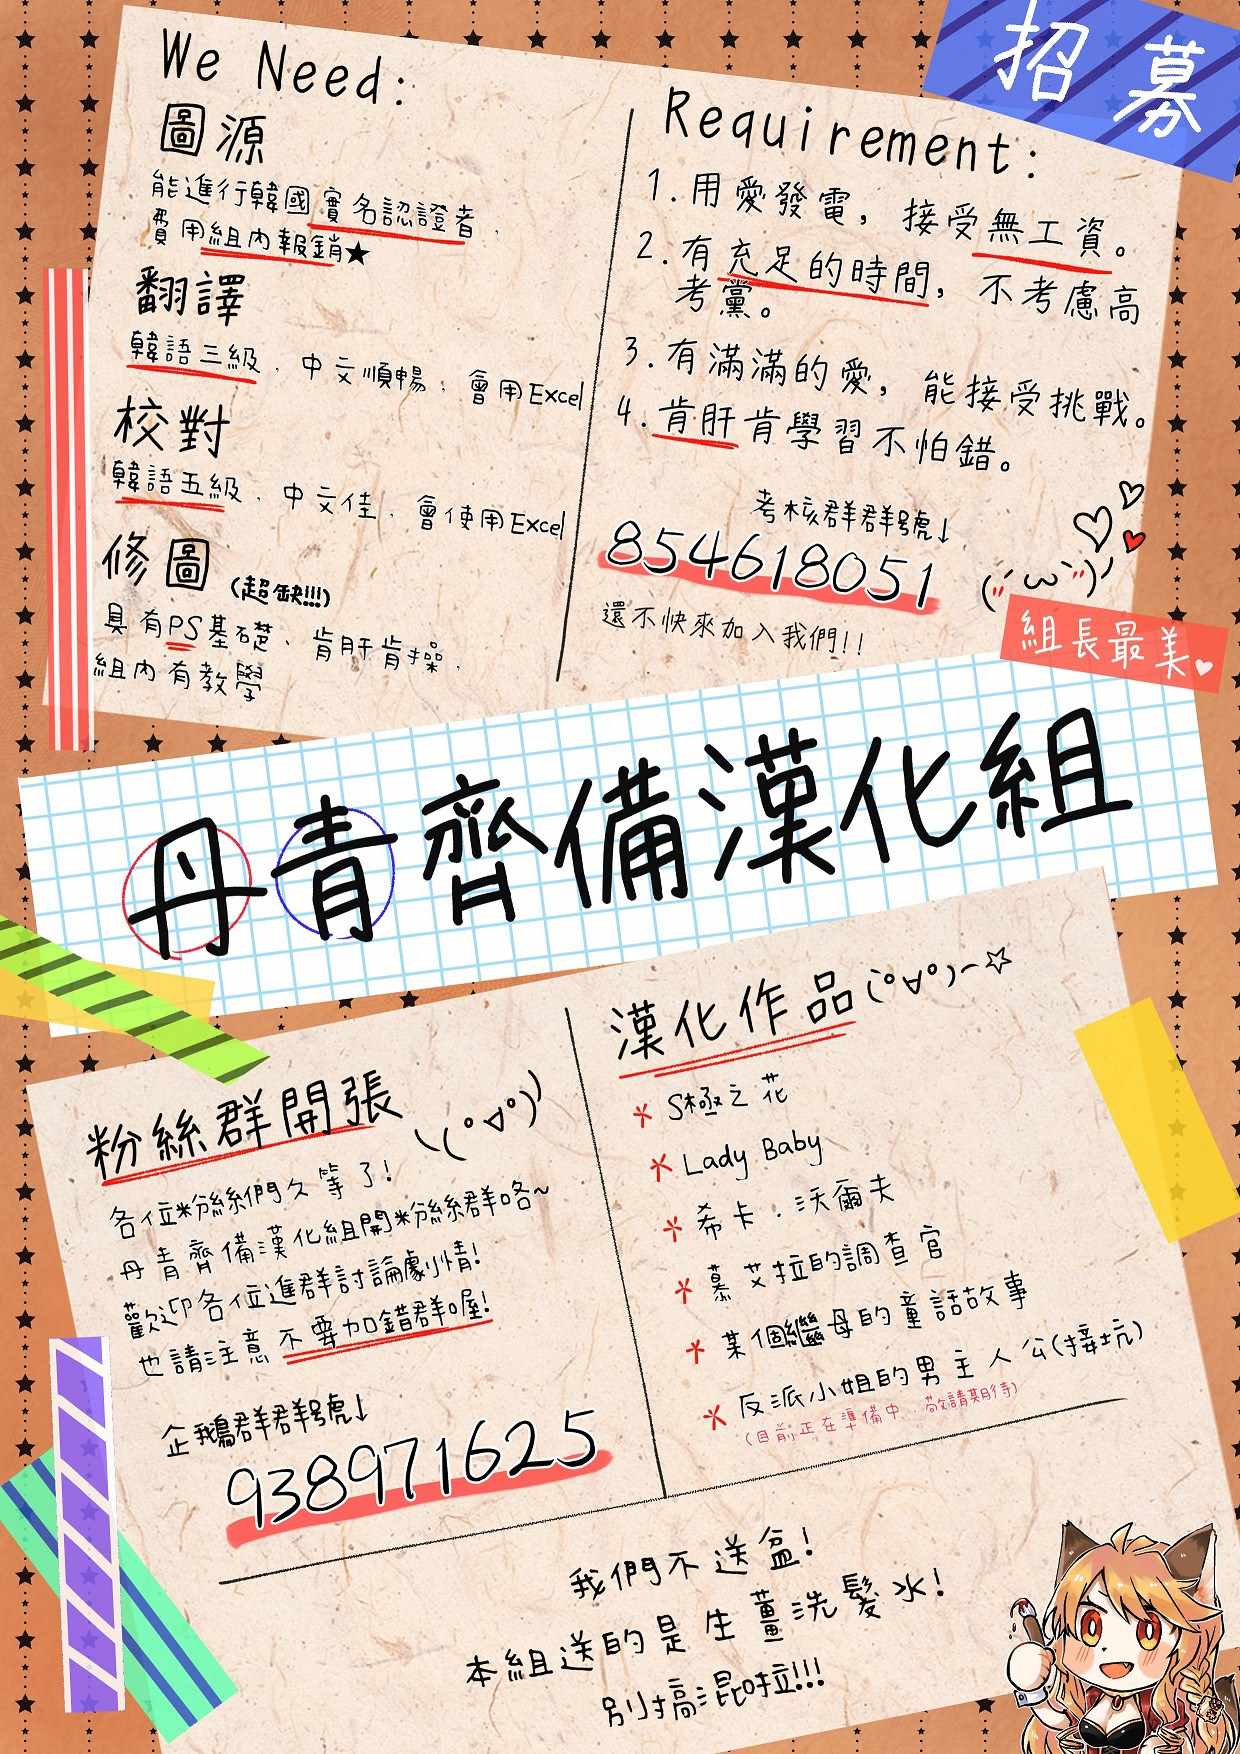 招募
We Need:
圖源
能進行韓國實名認證者、
費用組內報銷★
翻譯
韓語三級、中文順暢、會用Excel
校對
韓語五級、中文佳、會使用Excel
修圖(超缺!!!)
具有PS基礎、肯肝肯操、
組內有教學
Requirement:
1.用愛發電，接受無工資。
2.有充足的時間，不考慮高
考黨。
3.有滿滿的愛，能接受挑戰。
4.肯肝肯學習不怕錯。
考核群群號↓
854618051
還不快來加入我們!!
組長最美♥
丹青齊備漢化組
粉絲群開張
各位粉絲們久等了!
丹青齊備漢化組開粉絲群咯~
歡迎各位進群討論劇情!
也請注意不要加錯群喔!
企鵝群群號↓
938971625
漢化作品
* S極之花
* Lady Baby
* 希卡·沃爾夫
* 慕艾拉的調查官
* 某個繼母的童話故事
* 反派小姐的男主人公(接坑)
(目前正在準備中、敬請期待)
我們不送盆!
本組送的是生薑洗髮水!
別搞混啦!!!